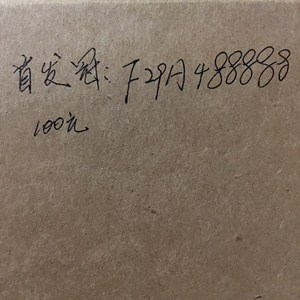 首发冠：F29A488888
100元